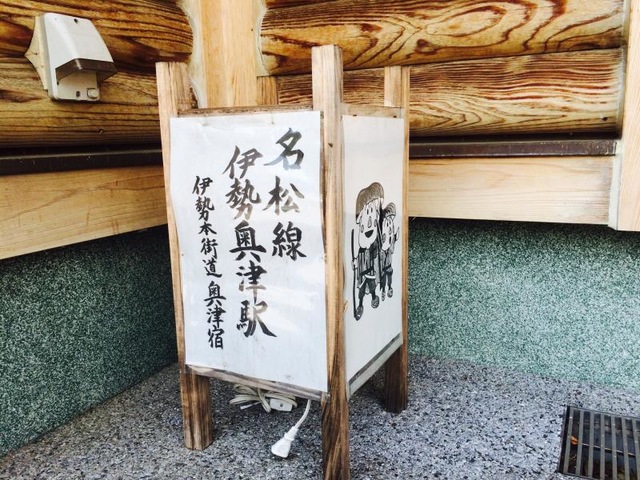 名松線
伊勢奥津駅
伊勢本街道 奥津宿